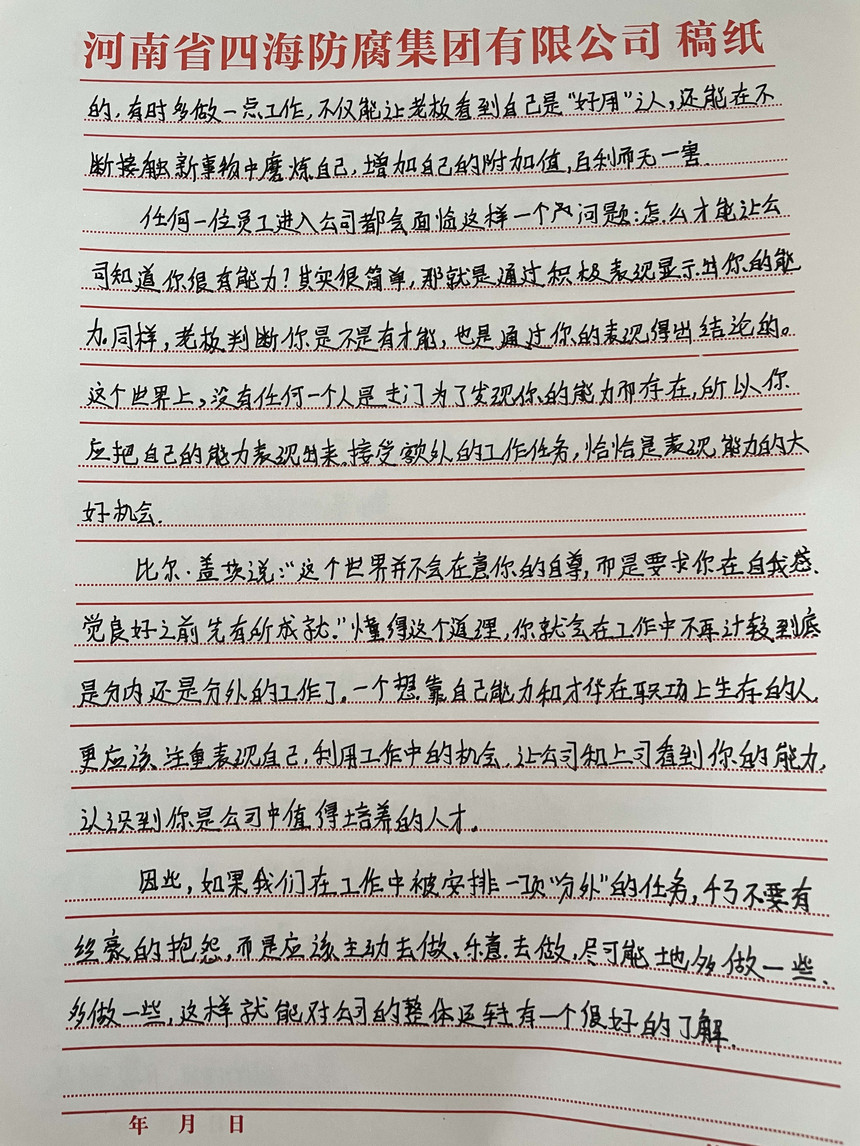 河南省四海防腐集团有限公司 稿纸
的,有时多做一点工作,不仅能让老板看到自己是"好用"之人,还能在不
断接触新事物中磨炼自己,增加自己的附加值,百利而无一害.
任何一位员工进入公司都会面临这样一个严问题:怎么才能让公
司知道你很有能力?其实很简单,那就是通过积极表现显示出你的能
力。同样,老板判断你是不是有才能,也是通过你的表现得出结论的。
这个世界上,没有任何一个人是专门为了发现你的能力而存在,所以你
应把自己的能力表现出来.接受额外的工作任务,恰恰是表现能力的大
好机会.
比尔·盖茨说:"这个世界并不会在意你的自尊,而是要求你在自我感
觉良好之前先有所成就."懂得这个道理,你就会在工作中不再计较到底
是分内还是分外的工作了.一个想靠自己能力和才华在职场上生存的人,
更应该注重表现自己,利用工作中的机会,让公司和上司看到你的能力,
认识到你是公司中值得培养的人才。
因此,如果我们在工作中被安排一项"分外"的任务,千万不要有
丝毫的抱怨,而是应该主动去做、乐意去做,尽可能地多做一些、
多做一些,这样就能对公司的整体运转有一个很好的了解.
年 月 日